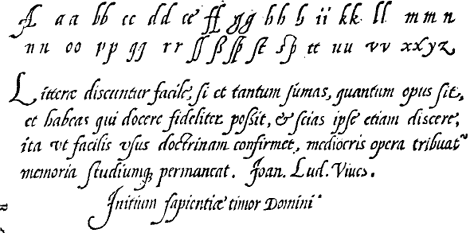 A a a bb cc dd ce ff gg hh h ii kk ll m m n
n u oo pp qq rr ſſ ß ſp ſt sp tt uu vv xxyz
Litteræ discuntur facile, si et tantum sumas, quantum opus sit,
et habeas qui docere fideliter poßit, & scias ipse etiam discere,
ita vt facilis vsus doctrinam confirmet, mediocris opera tribuat
memoria studiumq; permaneat. Joan. Lud. Viues.
Initium sapientiæ timor Domini